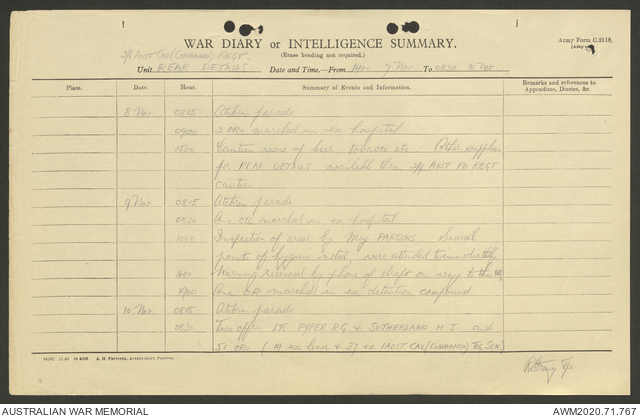 WAR DIARY or INTELLIGENCE SUMMARY.
(Erase heading not required.)
Army Form C.2118,
2/1 AUST CAV (COMMANDO) REGT
Unit REAR DETAILS Date and Time.—From 1400 7 Nov To 0830 10 Nov
Place. Date. Hour. Summary of Events and Information. Remarks and references to Appendices, Diaries, &c.
8 Nov 0815 Atebrin parade
0900 2 ORs marched in ex hospital
1500 Canteen issue of beer, tobacco etc. Other supplies
for REAR DETAILS available thru 2/1 AUST FD REGT
canteen
9 Nov 0815 Atebrin parade
0830 One OR marched in ex hospital
1000 Inspection of area by Maj PARSONS Several
points of hygiene noted, were attended to immediately
1400 Warning received by phone of draft on way to this
1900 One OR marched in ex detention compound
10 Nov 0815 Atebrin parade
0830 Two offrs Lts PYPER R.G & SUTHERLAND H J. and
51 ORs (14 ex leave & 37 ex 1 AUST CAV (COMMANDO) Trg Sqn.)
AUSTRALIAN WAR MEMORIAL
AWM2020.71.767